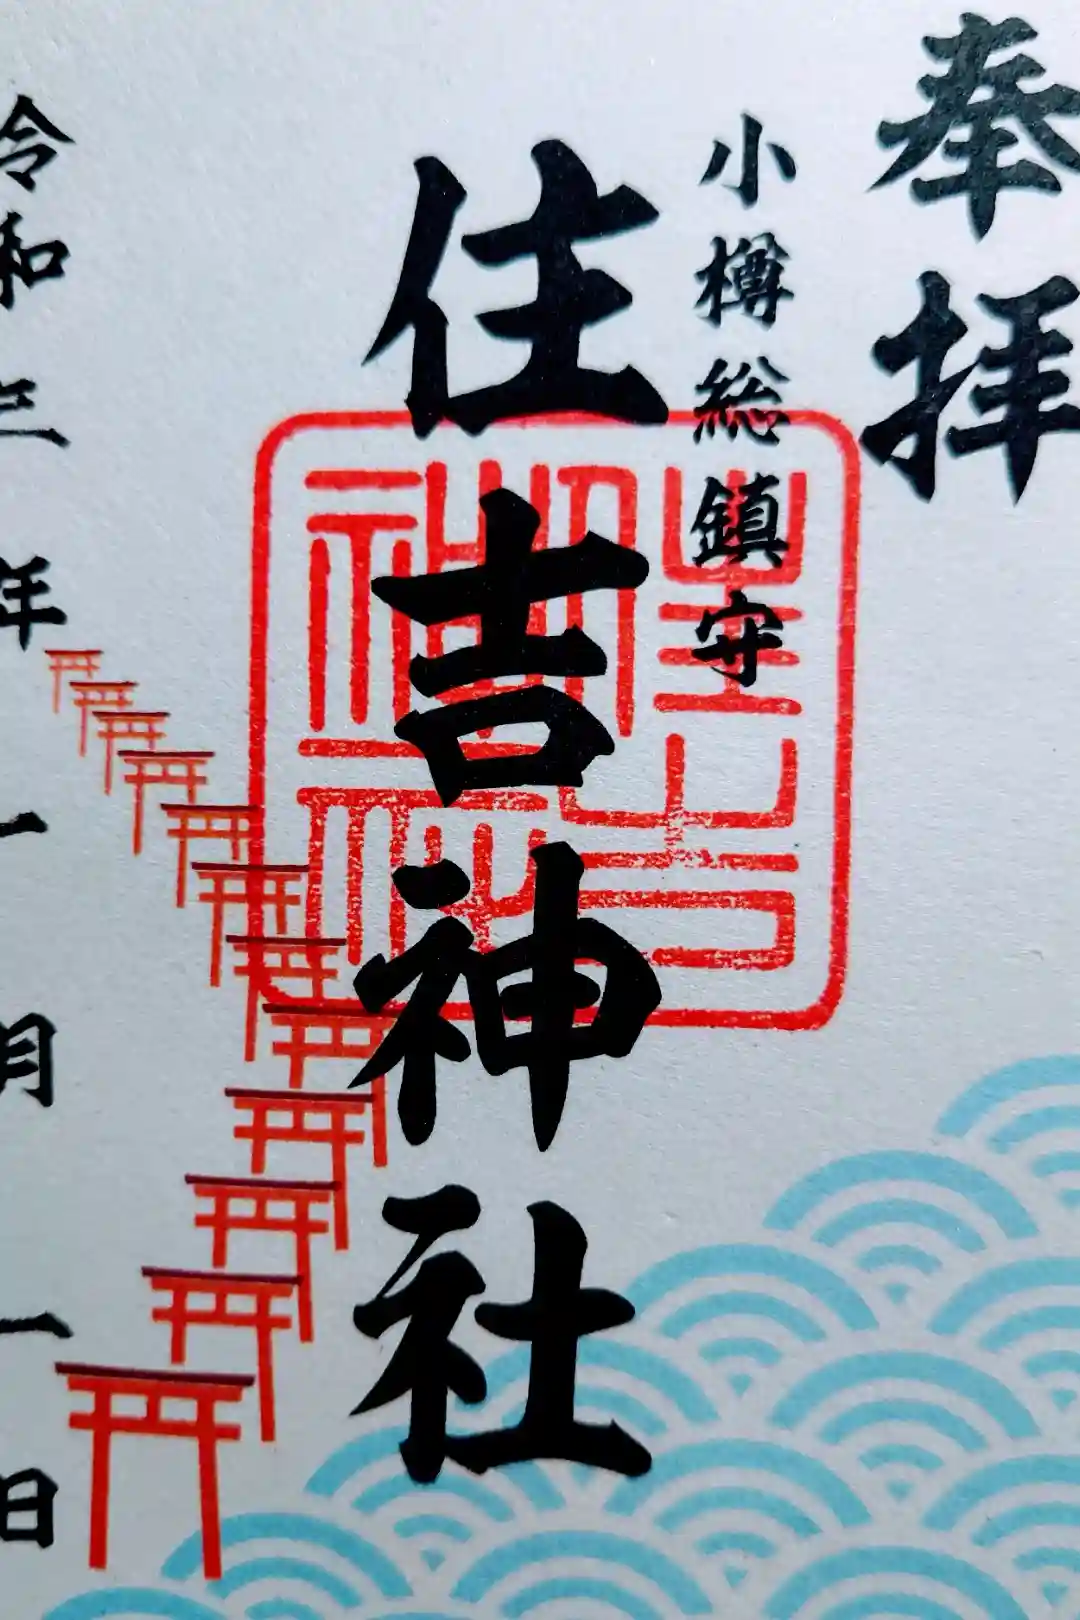 奉拝
小樽総鎮守
住吉神社
住吉神社印
令和三年一月一日